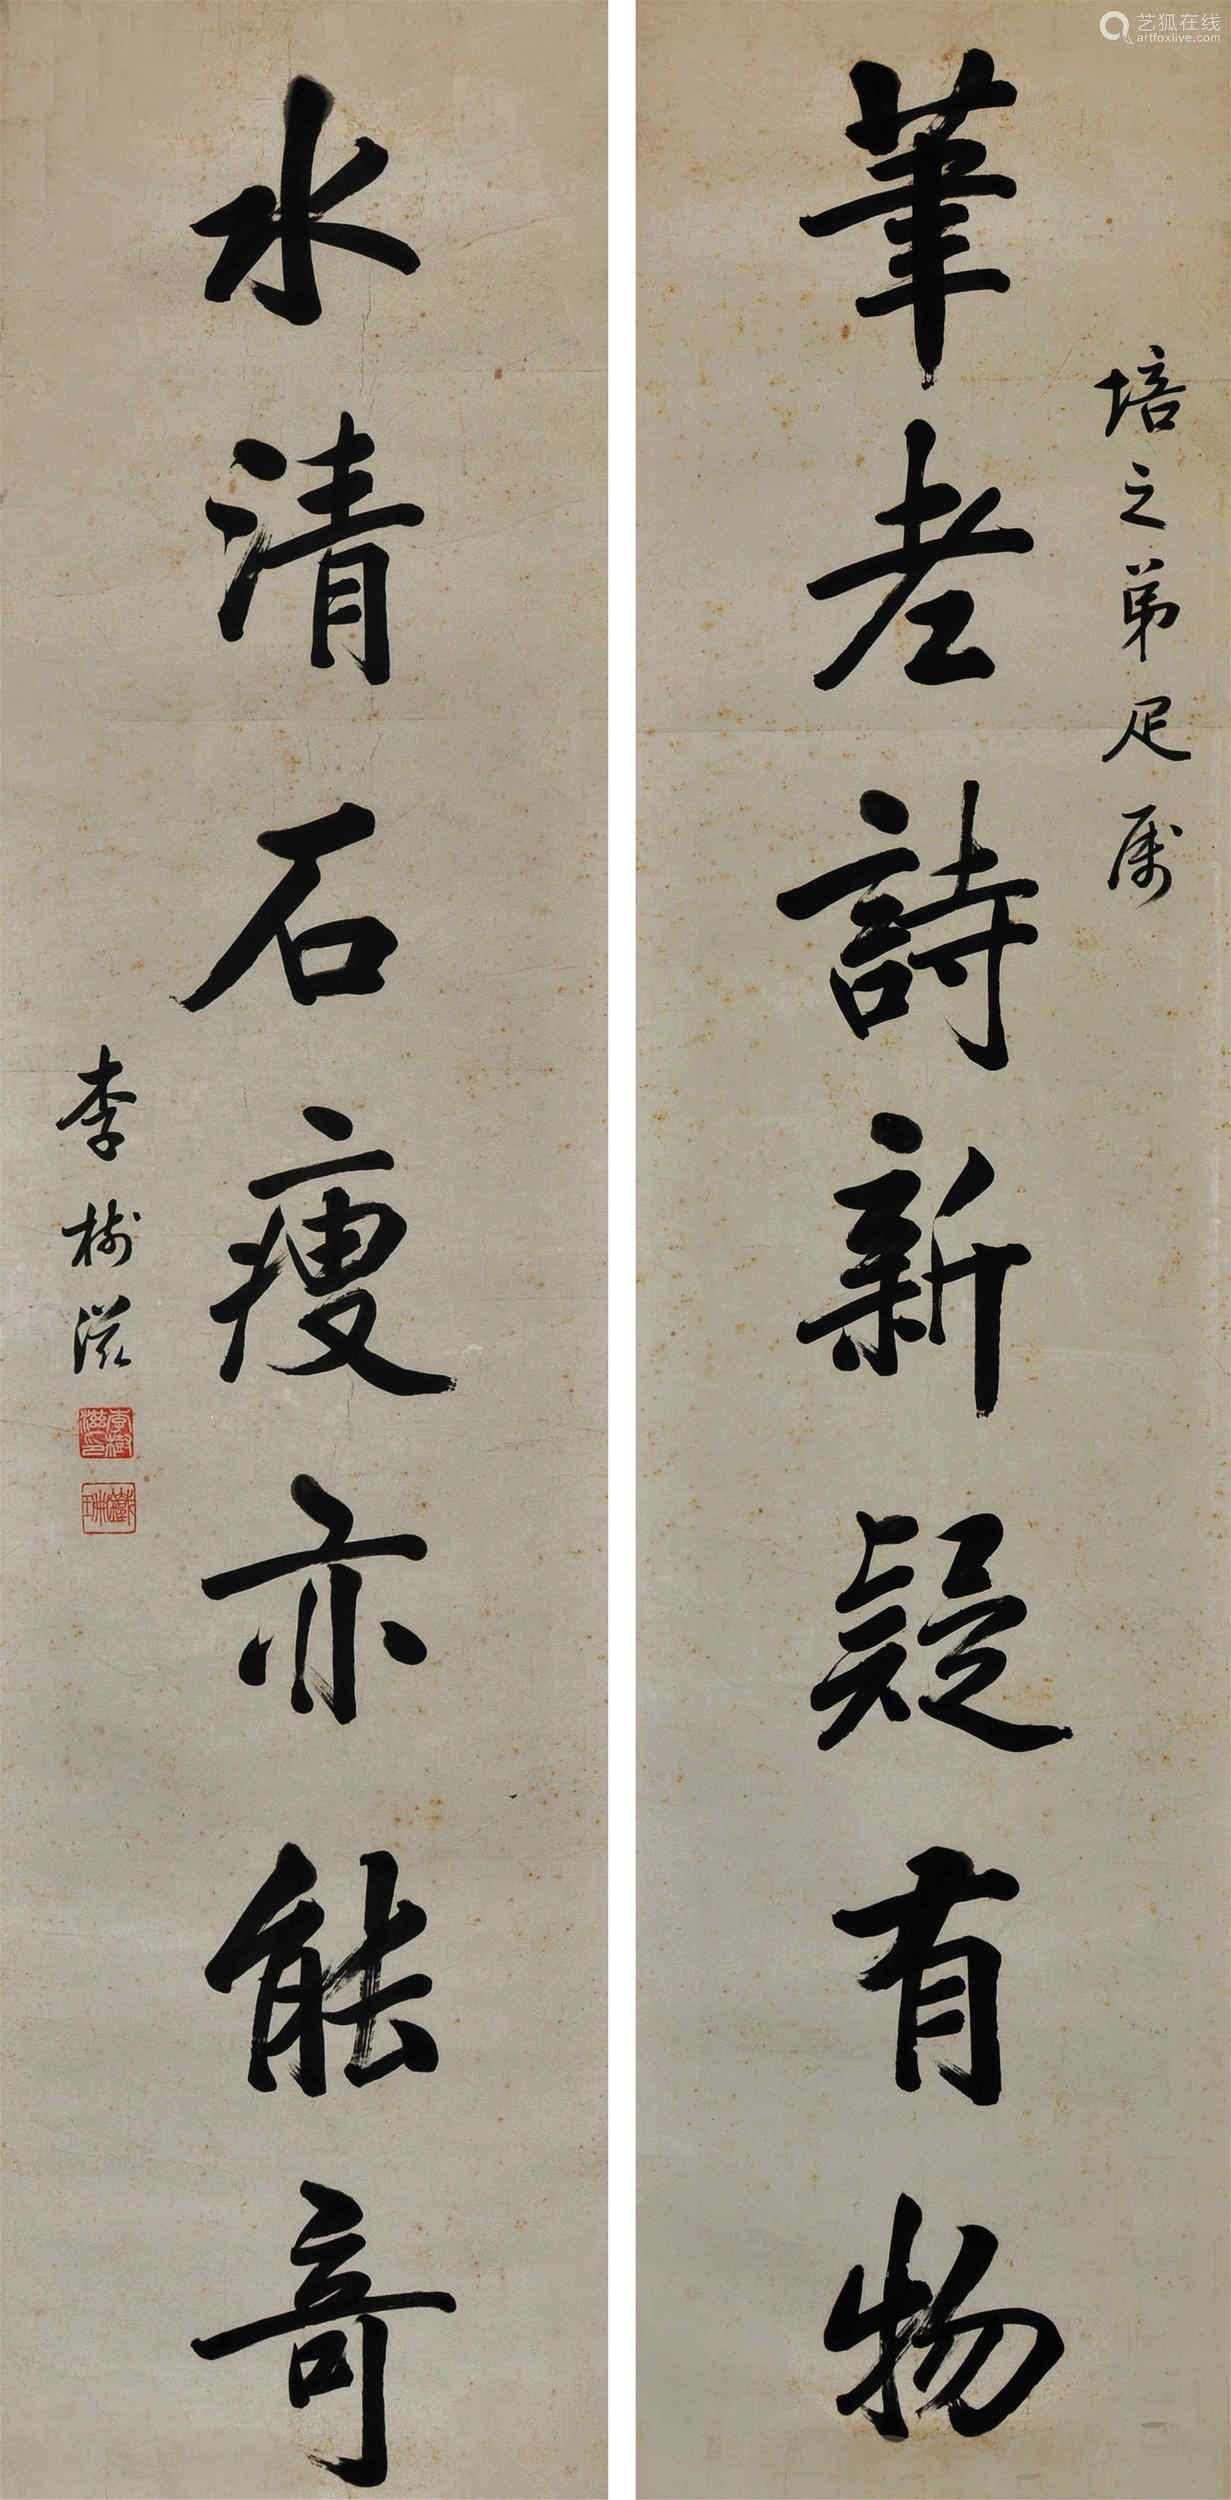 艺狐在线
artfoxlive.com
培之弟足属
筆老詩新疑有物
水清石瘦亦能奇
李樹滋
李樹滋印